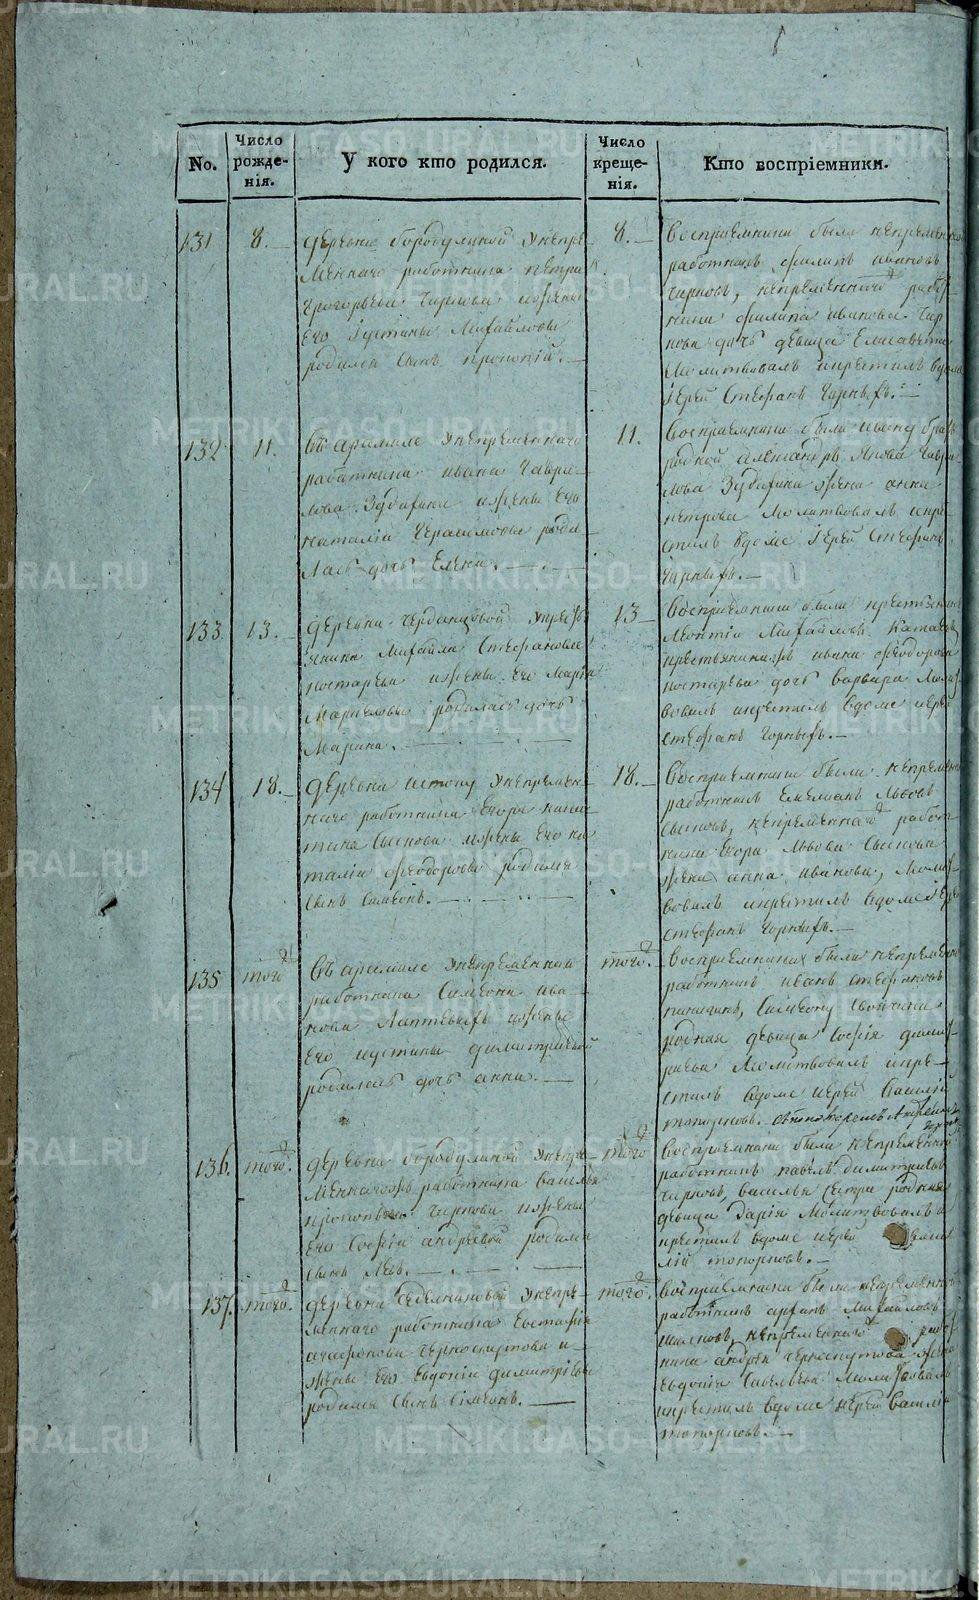 No.
Число рожде-
нія.
У кого кто родился.
Число креще-
нія.
Кто воспріемники.
131
8.
деревни бородулиной Унепре
менного работника петра
Григорьева Чарнова ижены
его Іустины Михайловы
родился сынъ прокопій.
8.
Восприемники были непремен
работникъ филипъ ивановъ
Чарновъ, непременнаго рабо
ника филипа иванова Чар
нова дочь девица Елисавета
Молитвовалъ икрестилъ вдоме
Іерей Стефанъ Чарныхъ.
132
11.
Въ арамиле Унепременнаго
работника ивана Гаври
лова Зубарина ижены его
наталіи Герасимовы роди
лась дочь Елена.
11.
Восприемники были ивану братъ
родной александръ Гаври
лова Зубарина жена анна
петрова Молитвовалъ икре
стилъ вдоме Іерей Стефанъ
Чарныхъ.
133
13.
деревни Чердынцовой Укресть
янина Михаила Стефанова
костарева ижены его Марѳы
Маркеловы родилась дочь
Марина.
13
Восприемники были крестьянинъ
Леонтій Михайловъ
крестьянина ивана феодорова
костарева дочь варвара Молит
вовалъ икрестилъ вдоме иерей
стефанъ Чарныхъ.
134
18.
деревни истоку Унепремен
наго работника Егора ники
тина Сыскова ижены его на
таліи феодоровы родился
сынъ Симеонъ.
18.
Восприемники были непремен
работникъ Емелианъ Львовъ
Сысковъ, непременнаго работ
ника Егора Львова Сыскова
жена анна иванова, Молит
вовалъ икрестилъ вдоме Іерей
стефанъ Чарныхъ.
135
того
Въ арамиле Унепременнаго
работника Симеона ива
нова Лаптевыхъ ижены
его иустины димитріевой
родилась дочь анна.
того.
Восприемники были непременно
работникъ иванъ стефановъ
Симеону
родная девица Софія
Молитвовалъ икре
стилъ вдоме иерей Василій
топорковъ.
136
того.
деревни бородулиной Унепре
менногожъ работника василья
прокопьева Чарнова ижены
его Софіи андреевой родился
сынъ Левъ.
того
Восприемники были непременной
работникъ павелъ димитриевъ
Чарновъ, василья сестра родная
девица Дарія Молитвовалъ и
крестилъ вдоме иерей васи
лій топорковъ.
137.
того.
деревни седельниковой Унепре
меннаго работника Евстафія
агафонова Черноскутова и
жены его Евдокіи димитріевы
родился сынъ Симеонъ.
того.
Восприемники были непременно
работникъ Михайловъ
непременнаго работ
ника андрея Черноскутова жена
Евдокія Савельева Молитвовалъ
икрестилъ вдоме Иерей Василій
топорковъ.
METRIKI.GASO-URAL.RU